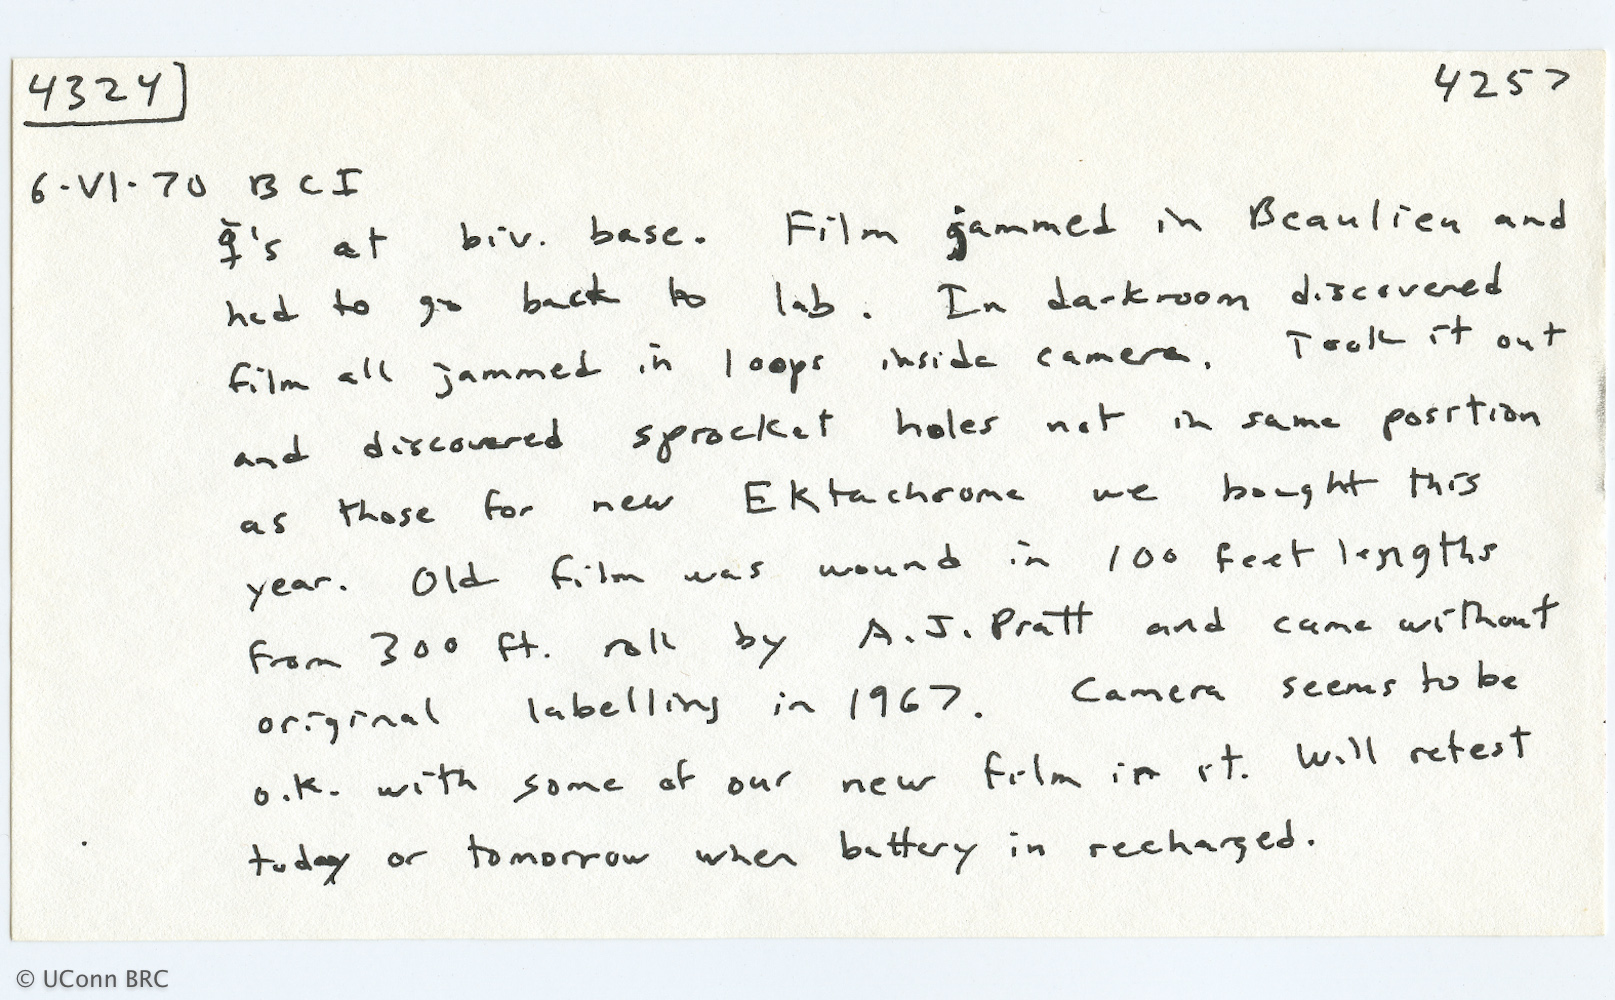 4324] 4257
6·VI·70 BCI
☿'s at biv. base. Film jammed in Beaulieu and
had to go back to lab. In darkroom discovered
film all jammed in loops inside camera. Took it out
and discovered sprocket holes not in same position
as those for new Ektachrome we bought this
year. Old film was wound in 100 feet lengths
from 300 ft. roll by A.J. Pratt and came without
original labelling in 1967. Camera seems to be
o.k. with some of our new film in it. Will retest
today or tomorrow when battery in recharged.
© UConn BRC